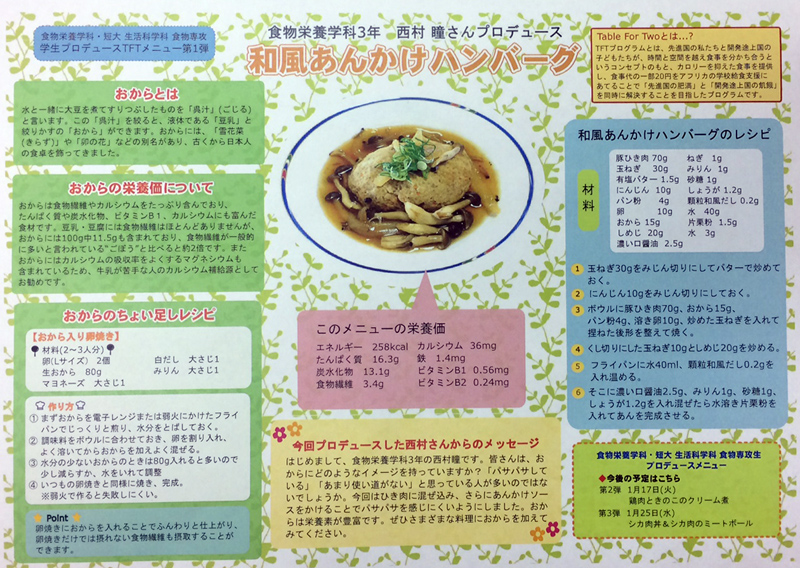 食物栄養学科・短大 生活科学科 食物専攻
学生プロデュースTFTメニュー第1弾
食物栄養学科3年　西村 瞳さんプロデュース
和風あんかけハンバーグ
Table For Twoとは...?
TFTプログラムとは、先進国の私たちと開発途上国の
子どもたちが、時間と空間を越え食事を分かち合うと
いうコンセプトのもと、カロリーを抑えた食事を提供
し、食事代の一部20円をアフリカの学校給食支援に
あてることで「先進国の肥満」と「開発途上国の飢餓」
を同時に解決することを目指したプログラムです。
おからとは
水と一緒に大豆を煮てすりつぶしたものを「呉汁」(ごじる)
と言います。この「呉汁」を絞ると、液体である「豆乳」と
絞りかすの「おから」ができます。おからには、「雪花菜
(きらず)」や「卯の花」などの別名があり、古くから日本人
の食卓を飾ってきました。
おからの栄養価について
おからは食物繊維やカルシウムをたっぷり含んでおり、
たんぱく質や炭水化物、ビタミンB1、カルシウムにも富んだ
食材です。豆乳・豆腐には食物繊維はほとんどありませんが、
おからには100g中11.5gも含まれており、食物繊維が一般的
に多いと言われている"ごぼう"と比べると約2倍です。また
おからにはカルシウムの吸収率をよくするマグネシウムも
含まれているため、牛乳が苦手な人のカルシウム補給源として
お勧めです。
おからのちょい足しレシピ
【おから入り卵焼き】
材料(2～3人分)
卵(Lサイズ)　2個　白だし　大さじ1
生おから　80g　みりん　大さじ1
マヨネーズ　大さじ1
作り方
① まずおからを電子レンジまたは弱火にかけたフライ
パンでじっくりと煎り、水分をとばしておく。
② 調味料をボウルに合わせておき、卵を割り入れ、
よく溶いてからおからを加えよく混ぜる。
③ 水分の少ないおからのときは80g入れると多いので
少し減らすか、水をいれて調整
④ いつもの卵焼きと同様に焼き、完成。
※弱火で作ると失敗しにくい。
Point
卵焼きにおからを入れることでふんわりと仕上がり、
卵焼きだけでは摂れない食物繊維も摂取することが
できます。
このメニューの栄養価
エネルギー　258kcal　カルシウム　36mg
たんぱく質　16.3g　鉄　1.4mg
炭水化物　13.1g　ビタミンB1　0.56mg
食物繊維　3.4g　ビタミンB2　0.24mg
今回プロデュースした西村さんからのメッセージ
はじめまして、食物栄養学科3年の西村瞳です。皆さんは、お
からにどのようなイメージを持っていますか？「パサパサしてい
る」「あまり使い道がない」と思っている人が多いのではない
でしょうか。今回はひき肉に混ぜ込み、さらにあんかけソー
スをかけることでパサパサを感じにくいようにしました。おか
らは栄養素が豊富です。ぜひさまざまな料理におからを加えて
みてください。
和風あんかけハンバーグのレシピ
材料
豚ひき肉 70g　ねぎ　1g
玉ねぎ　30g　みりん　1g
有塩バター 1.5g　砂糖　1g
にんじん　10g　しょうが 1.2g
パン粉　4g　顆粒和風だし 0.2g
卵　10g　水　40g
おから 15g　片栗粉　1.5g
しめじ　20g　水　3g
濃い口醤油　2.5g
1 玉ねぎ30gをみじん切りにしてバターで炒めて
おく。
2 にんじん10gをみじん切りにしておく。
3 ボウルに豚ひき肉70g、おから15g、
パン粉4g、溶き卵10g、炒めた玉ねぎを入れて
捏ねた後形を整えて焼く。
4 くし切りした玉ねぎ10gとしめじ20gを炒める。
5 フライパンに水40ml、顆粒和風だし0.2gを
入れ温める。
6 そこに濃い口醤油2.5g、みりん1g、砂糖1g、
しょうが1.2gを入れ混ぜたら水溶き片栗粉を
入れてあんを完成させる。
食物栄養学科・短大 生活科学科 食物専攻生
プロデュースメニュー
◆今後の予定はこちら
第2弾　1月17日(火)
鶏肉ときのこのクリーム煮
第3弾　1月25日(水)
シカ肉丼＆シカ肉のミートボール